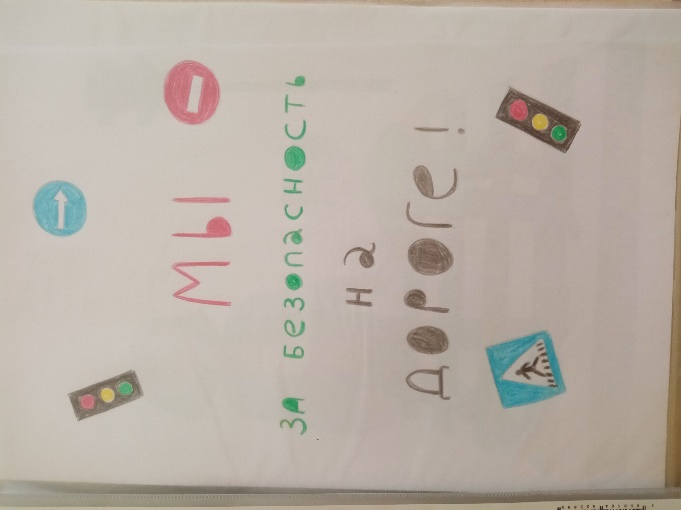 Мы
ЗА БЕЗОПАСНОСТЬ
на
ДОРОГЕ!